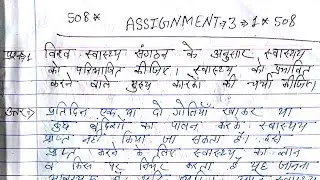 508* ASSIGNMENT→3→1*508
प्रश्न:1 विश्व स्वास्थ्य संगठन के अनुसार स्वास्थ्य
को परिभाषित कीजिए। स्वास्थ्य को प्रभावित
करने वाले मुख्य कारकों की चर्चा कीजिए।
उत्तर:→ प्रतिदिन एक या दो गोलियाँ खाकर या
कुछ का पालन करके स्वास्थ्य
प्राप्त नहीं किया जा सकता है। इसे
प्राप्त करने के लिए स्वास्थ्य का
किस पर निर्भर करता है यह जानना